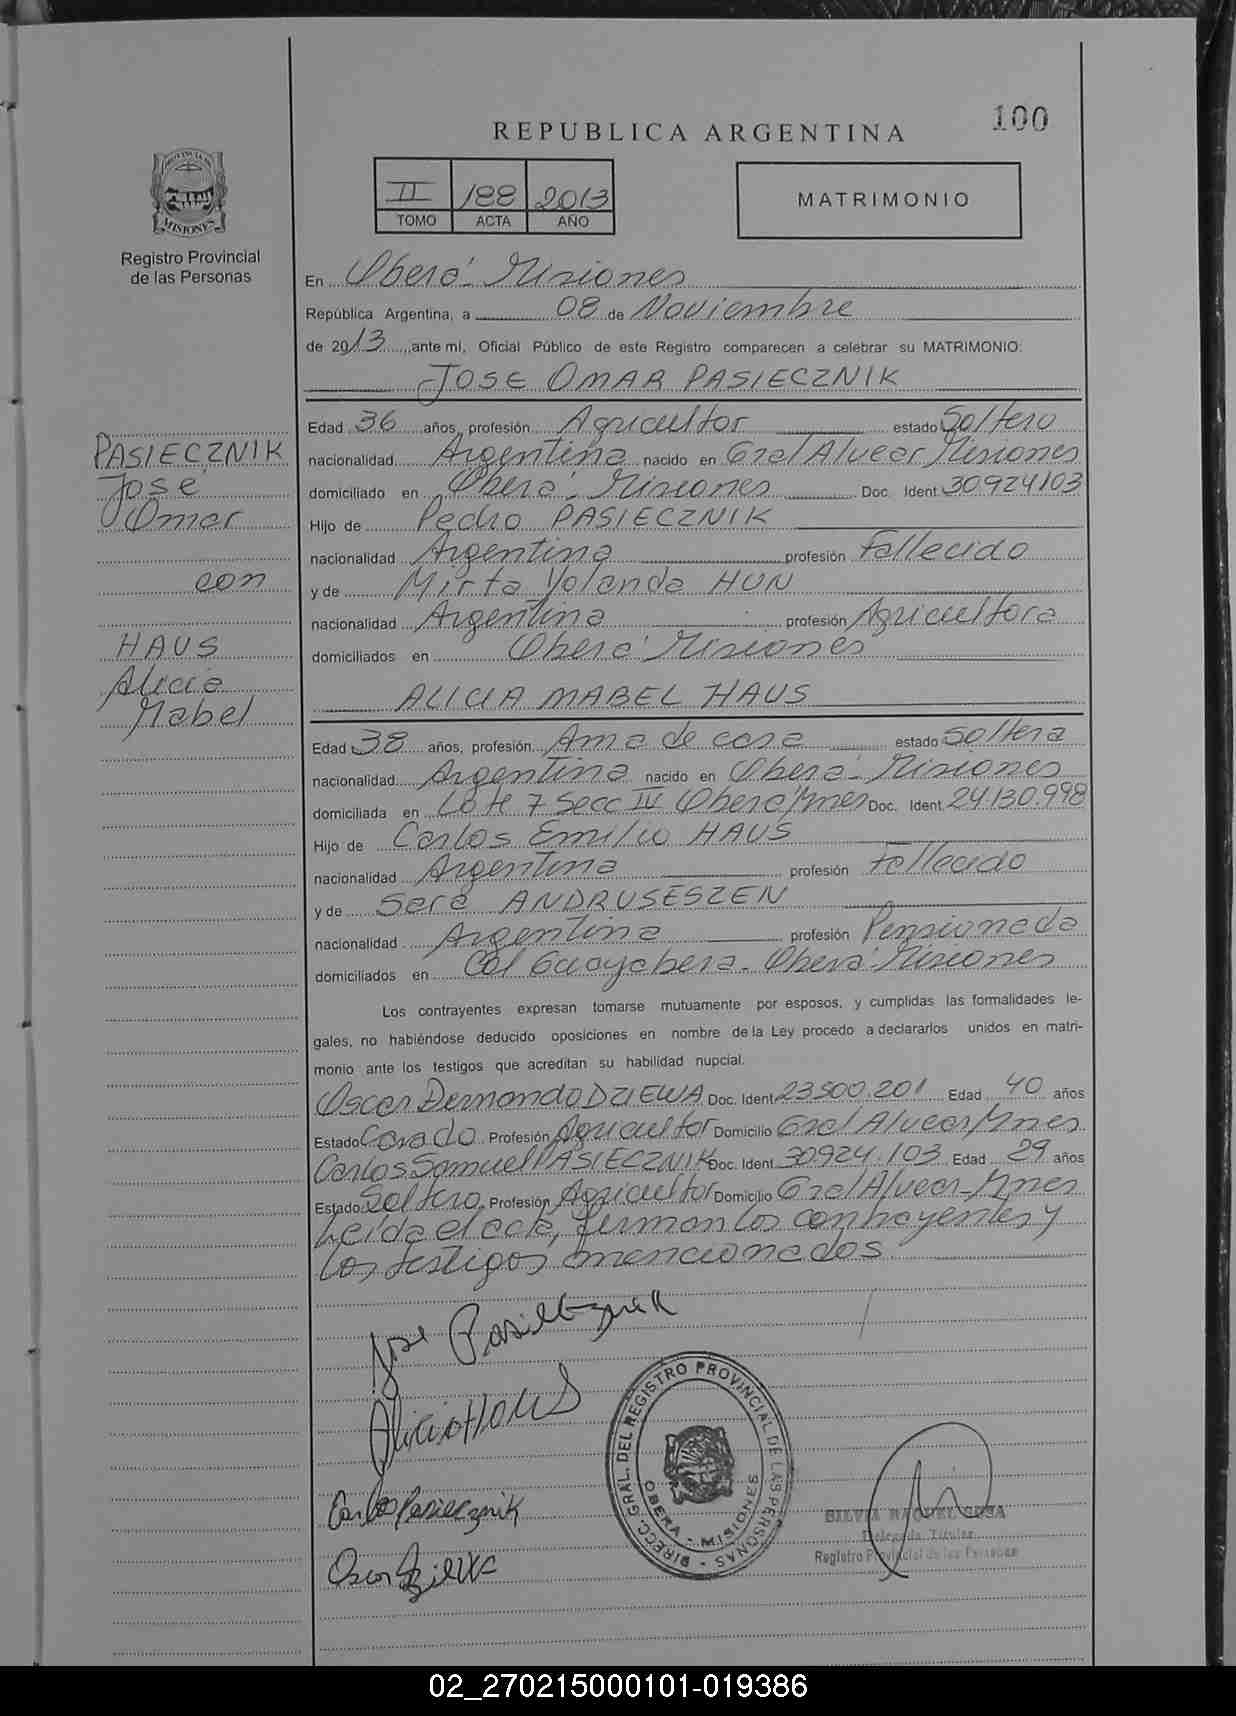 100
REPUBLICA ARGENTINA
PROVINCIA DE
MISIONES
Registro Provincial
de las Personas
II 188 2013
TOMO ACTA AÑO
MATRIMONIO
En Oberá - Misiones
República Argentina, a 08 de Noviembre
de 2013, ante mí, Oficial Público de este Registro comparecen a celebrar su MATRIMONIO:
JOSE OMAR PASIECZNIK
PASIECZNIK
José
Omar
con
HAUS
Alicia
Mabel
Edad 36 años, profesión Agricultor estado Soltero
nacionalidad Argentina nacido en Gral Alvear Misiones
domiciliado en Oberá - Misiones Doc. Ident. 30924103
Hijo de Pedro PASIECZNIK
nacionalidad Argentina profesión Fallecido
y de Mirta Yolanda HUN
nacionalidad Argentina profesión Agricultora
domiciliados en Oberá Misiones
ALICIA MABEL HAUS
Edad 38 años, profesión Ama de casa estado Soltera
nacionalidad Argentina nacido en Oberá - Misiones
domiciliada en Lote 7 Secc IV Oberá Mnes Doc. Ident. 24.130.998
Hijo de Carlos Emilio HAUS
nacionalidad Argentina profesión Fallecido
y de Sara ANDRUSESZEN
nacionalidad Argentina profesión Pensionada
domiciliados en Col Guayabera - Oberá Misiones
Los contrayentes expresan tomarse mutuamente por esposos, y cumplidas las formalidades le-
gales, no habiéndose deducido oposiciones en nombre de la Ley procedo a declararlos unidos en matri-
monio ante los testigos que acreditan su habilidad nupcial.
Oscar Dernando DZIEWA Doc. Ident. 23500.201 Edad 40 años
Estado Casado Profesión Agricultor Domicilio Gral Alvear Mnes
Carlos Samuel PASIECZNIK Doc. Ident. 30924.103 Edad 29 años
Estado Soltero Profesión Agricultor Domicilio Gral Alvear - Mnes
Leída el acta, firman los contrayentes y
los testigos mencionados
Jose Pasiecznik
Alicia Haus
Carlos Pasiecznik
Oscar Dziewa
DIRECC. GRAL. DEL REGISTRO PROVINCIAL DE LAS PERSONAS
OBERA - MISIONES
SILVIA RAQUEL SOSA
Delegada Titular
Registro Provincial de las Personas
02_270215000101-019386